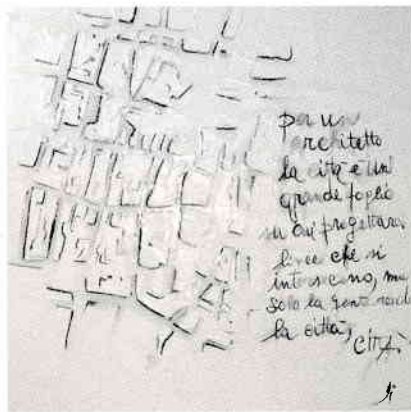 per un
architetto
la città è un
grande foglio
su cui progettare
linee che si
intersecano, ma
solo la gente rende
la città,
città.